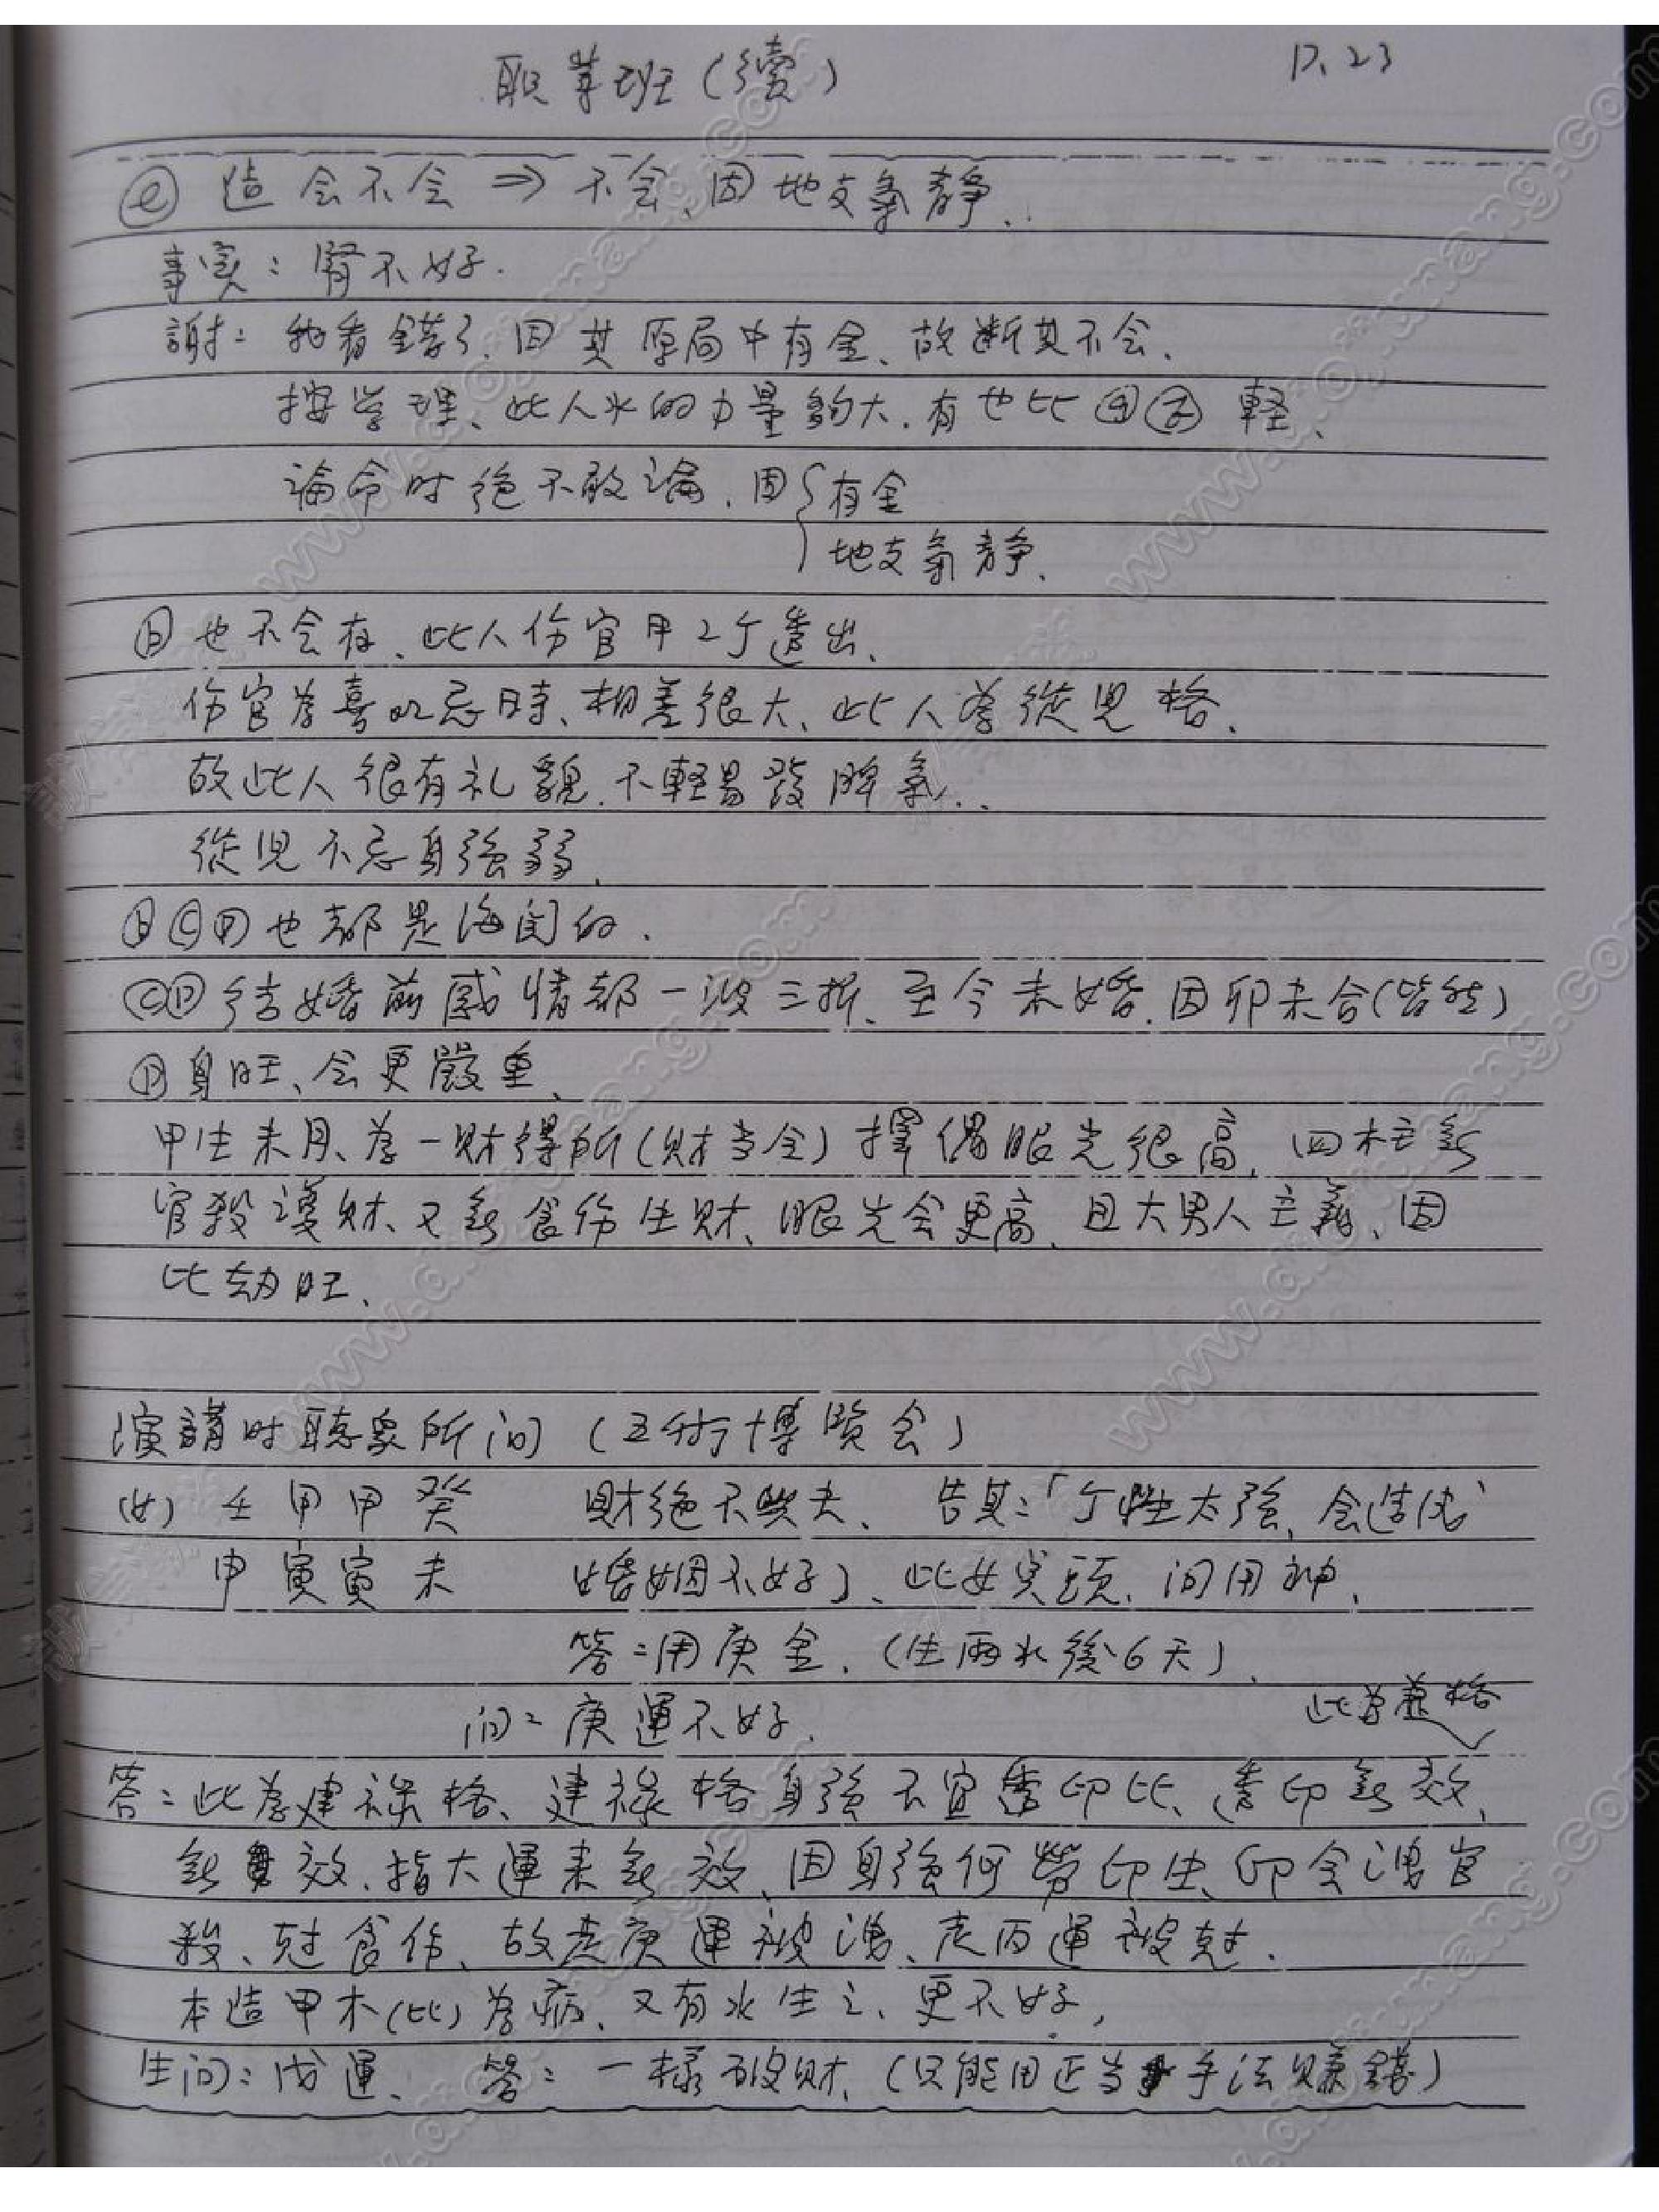 职業班(續) P.23
ⓔ 造会不会 ⇒ 不会、因地支氣靜、
事実：腎不好.
謝：我看錯了、因其原局中有金、故断其不会、
按学理、此人水的力量夠大、有也比ⓐⓑ輕、
論命时絕不敢論、因{有金
地支氣靜、
ⓑ也不会有、此人伤官甲2个透出、
伤官為喜以忌時、相差很大、此人為從兒格、
故此人很有礼貌、不輕易發脾氣、
從兒不忌身強弱、
ⓑⓒⓓ也都是海関的、
ⓒⓓ結婚前感情都一波三折、至今未婚、因卯未合(皆然)
ⓓ身旺、会更嚴重、
甲生未月、為一財得所(財当令)擇偶眼光很高、四柱無
官殺護財、又無食伤生財、眼光会更高、且大男人主義、因
比劫旺、
演講时聽衆所问 (五術博覽会)
(女) 壬甲甲癸 財絕不興夫、告其：「个性太強、会造成
申寅寅未 婚姻不好」、此女点頭、问用神、
答：用庚金、(生雨水後6天)
问：庚運不好、
此為兼格
答：此為建祿格、建祿格身強不宜透印比、透印無效、
無效、指大運来無效、因身強何勞印生、印会洩官
殺、尅食伤、故走庚運被洩、走丙運被尅、
本造甲木(比)為病、又有水生之、更不好，
生问：戊運、 答：一樣破財、(只能用正当手法賺錢)